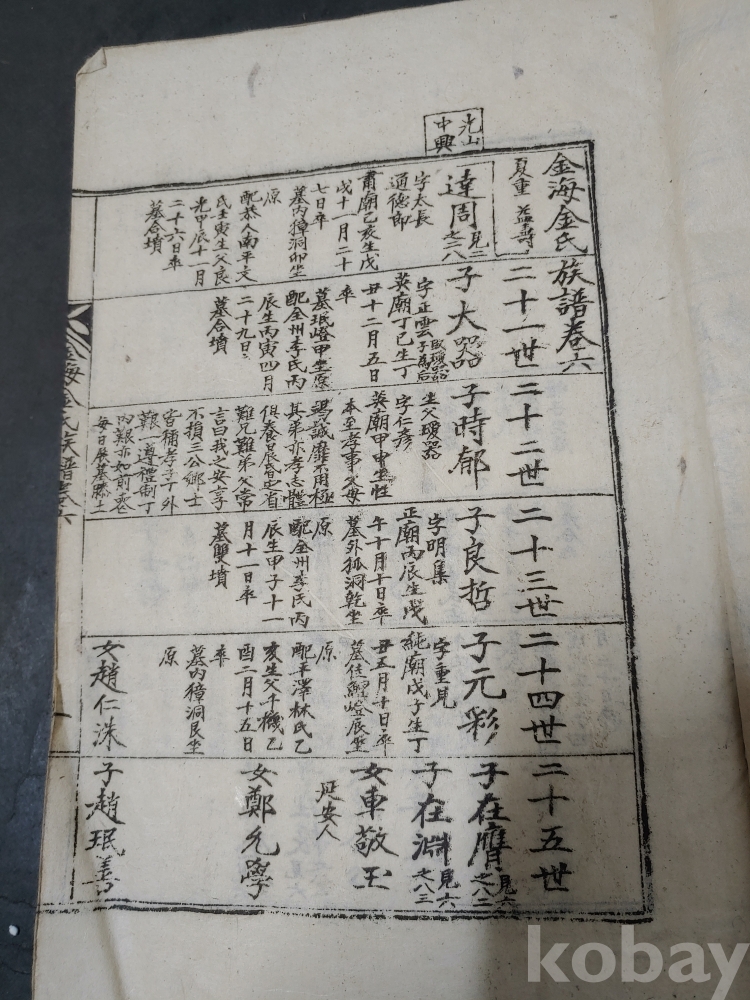 光山
中興
金海金氏族譜卷六
夏重 益壽
二十一世
二十二世
二十三世
二十四世
二十五世
達周 見二之二八
字太長
通德郎
肅廟己亥生戊
戌十一月二十
七日卒
墓內獐洞卯坐
原
配恭人南平文
氏壬寅生父良
光甲辰十一月
二十六日卒
墓合墳
子大器
字正雲
英廟丁巳生丁
丑十二月五日
卒
墓珉嶝甲坐原
配全州李氏丙
辰生丙寅四月
二十九日
墓合墳
子時郁
生父璦器
字仁彥
英廟甲申生性
本至孝事父母
竭誠靡不用極
其弟亦孝志體
俱養晨昏定省
難兄難弟父常
言曰我之安享
不損三公鄉士
皆稱孝子丁外
艱一遵禮制丁
內艱亦如前喪
每日展墓
子良哲
字明集
正廟丙辰生戊
午十月十日卒
墓外狐洞乾坐
原
配全州李氏丙
辰生甲子十一
月十一日卒
墓雙墳
子元彩
字重見
純廟戊子生丁
丑五月十日卒
墓佳嶝辰坐
原
配平澤林氏乙
亥生父千機乙
酉二月十五日
卒
墓內獐洞艮坐
原
女趙仁洙
子在膺 見六之八二
子在淵 見六之八三
女車敬玉
延安人
女鄭允學
子趙珉善
金海金氏族譜卷六
一
kobay